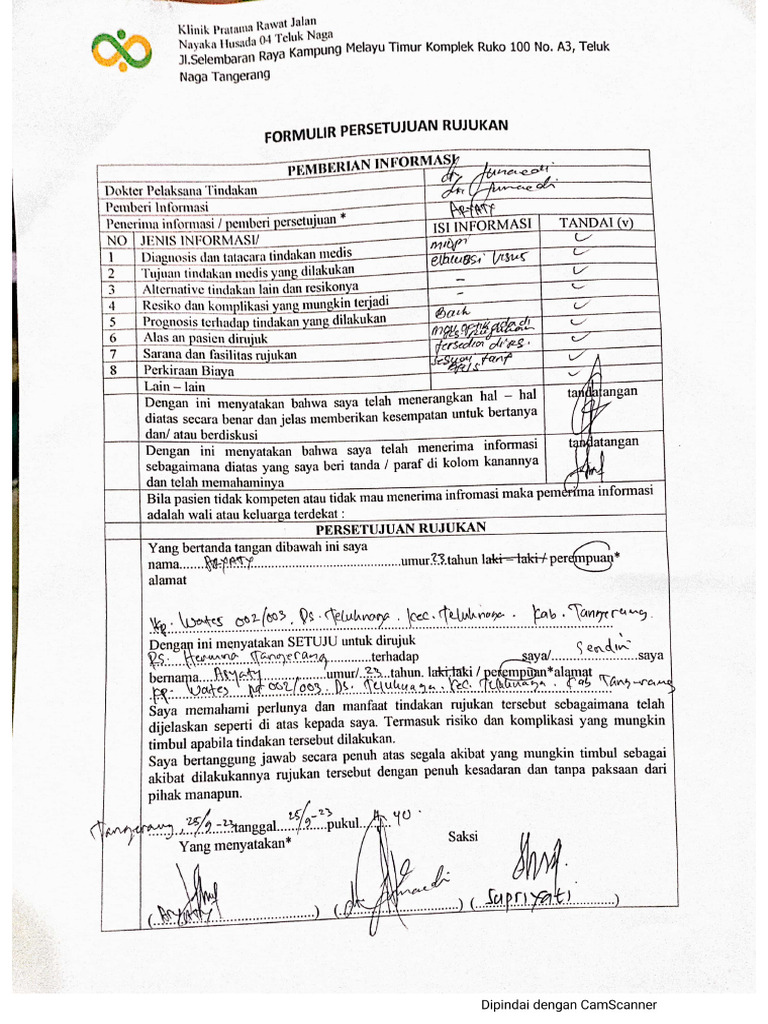 Klinik Pratama Rawat Jalan
Nayaka Husada 04 Teluk Naga
Jl.Selembaran Raya Kampung Melayu Timur Komplek Ruko 100 No. A3, Teluk
Naga Tangerang
FORMULIR PERSETUJUAN RUJUKAN
PEMBERIAN INFORMASI
Dokter Pelaksana Tindakan dr Junaedi
Pemberi Informasi dr Junaedi
Penerima informasi / pemberi persetujuan * ARYATY
NO JENIS INFORMASI/ ISI INFORMASI TANDAI (v)
1 Diagnosis dan tatacara tindakan medis miopi ✓
2 Tujuan tindakan medis yang dilakukan visus ✓
3 Alternative tindakan lain dan resikonya – ✓
4 Resiko dan komplikasi yang mungkin terjadi – ✓
5 Prognosis terhadap tindakan yang dilakukan Baik ✓
6 Alas an pasien dirujuk ✓
7 Sarana dan fasilitas rujukan tersedia di RS. ✓
8 Perkiraan Biaya sesuai tarif ✓
Lain – lain
Dengan ini menyatakan bahwa saya telah menerangkan hal – hal tandatangan
diatas secara benar dan jelas memberikan kesempatan untuk bertanya
dan/ atau berdiskusi
Dengan ini menyatakan bahwa saya telah menerima informasi tandatangan
sebagaimana diatas yang saya beri tanda / paraf di kolom kanannya
dan telah memahaminya
Bila pasien tidak kompeten atau tidak mau menerima infromasi maka pemerima informasi
adalah wali atau keluarga terdekat :
PERSETUJUAN RUJUKAN
Yang bertanda tangan dibawah ini saya
nama......ARYATY......umur.23.tahun laki – laki / perempuan*
alamat
Kp. Wates 002/003. Ds. Teluknaga. Kec. Teluknaga. Kab. Tangerang.
Dengan ini menyatakan SETUJU untuk dirujuk
RS. Hermina Tangerang.........terhadap saya/ Sendiri saya
bernama....Aryaty............umur/.23...tahun. laki laki / perempuan*alamat
Kp. Wates Rt 002/003. Ds. Teluknaga. Kec. Teluknaga. Kab Tangerang
Saya memahami perlunya dan manfaat tindakan rujukan tersebut sebagaimana telah
dijelaskan seperti di atas kepada saya. Termasuk risiko dan komplikasi yang mungkin
timbul apabila tindakan tersebut dilakukan.
Saya bertanggung jawab secara penuh atas segala akibat yang mungkin timbul sebagai
akibat dilakukannya rujukan tersebut dengan penuh kesadaran dan tanpa paksaan dari
pihak manapun.
Tangerang, 25/9-23 tanggal 25/9-23 pukul 40.
Yang menyatakan* Saksi
(ARYATY) (dr Junaedi) (Supriyati)
Dipindai dengan CamScanner